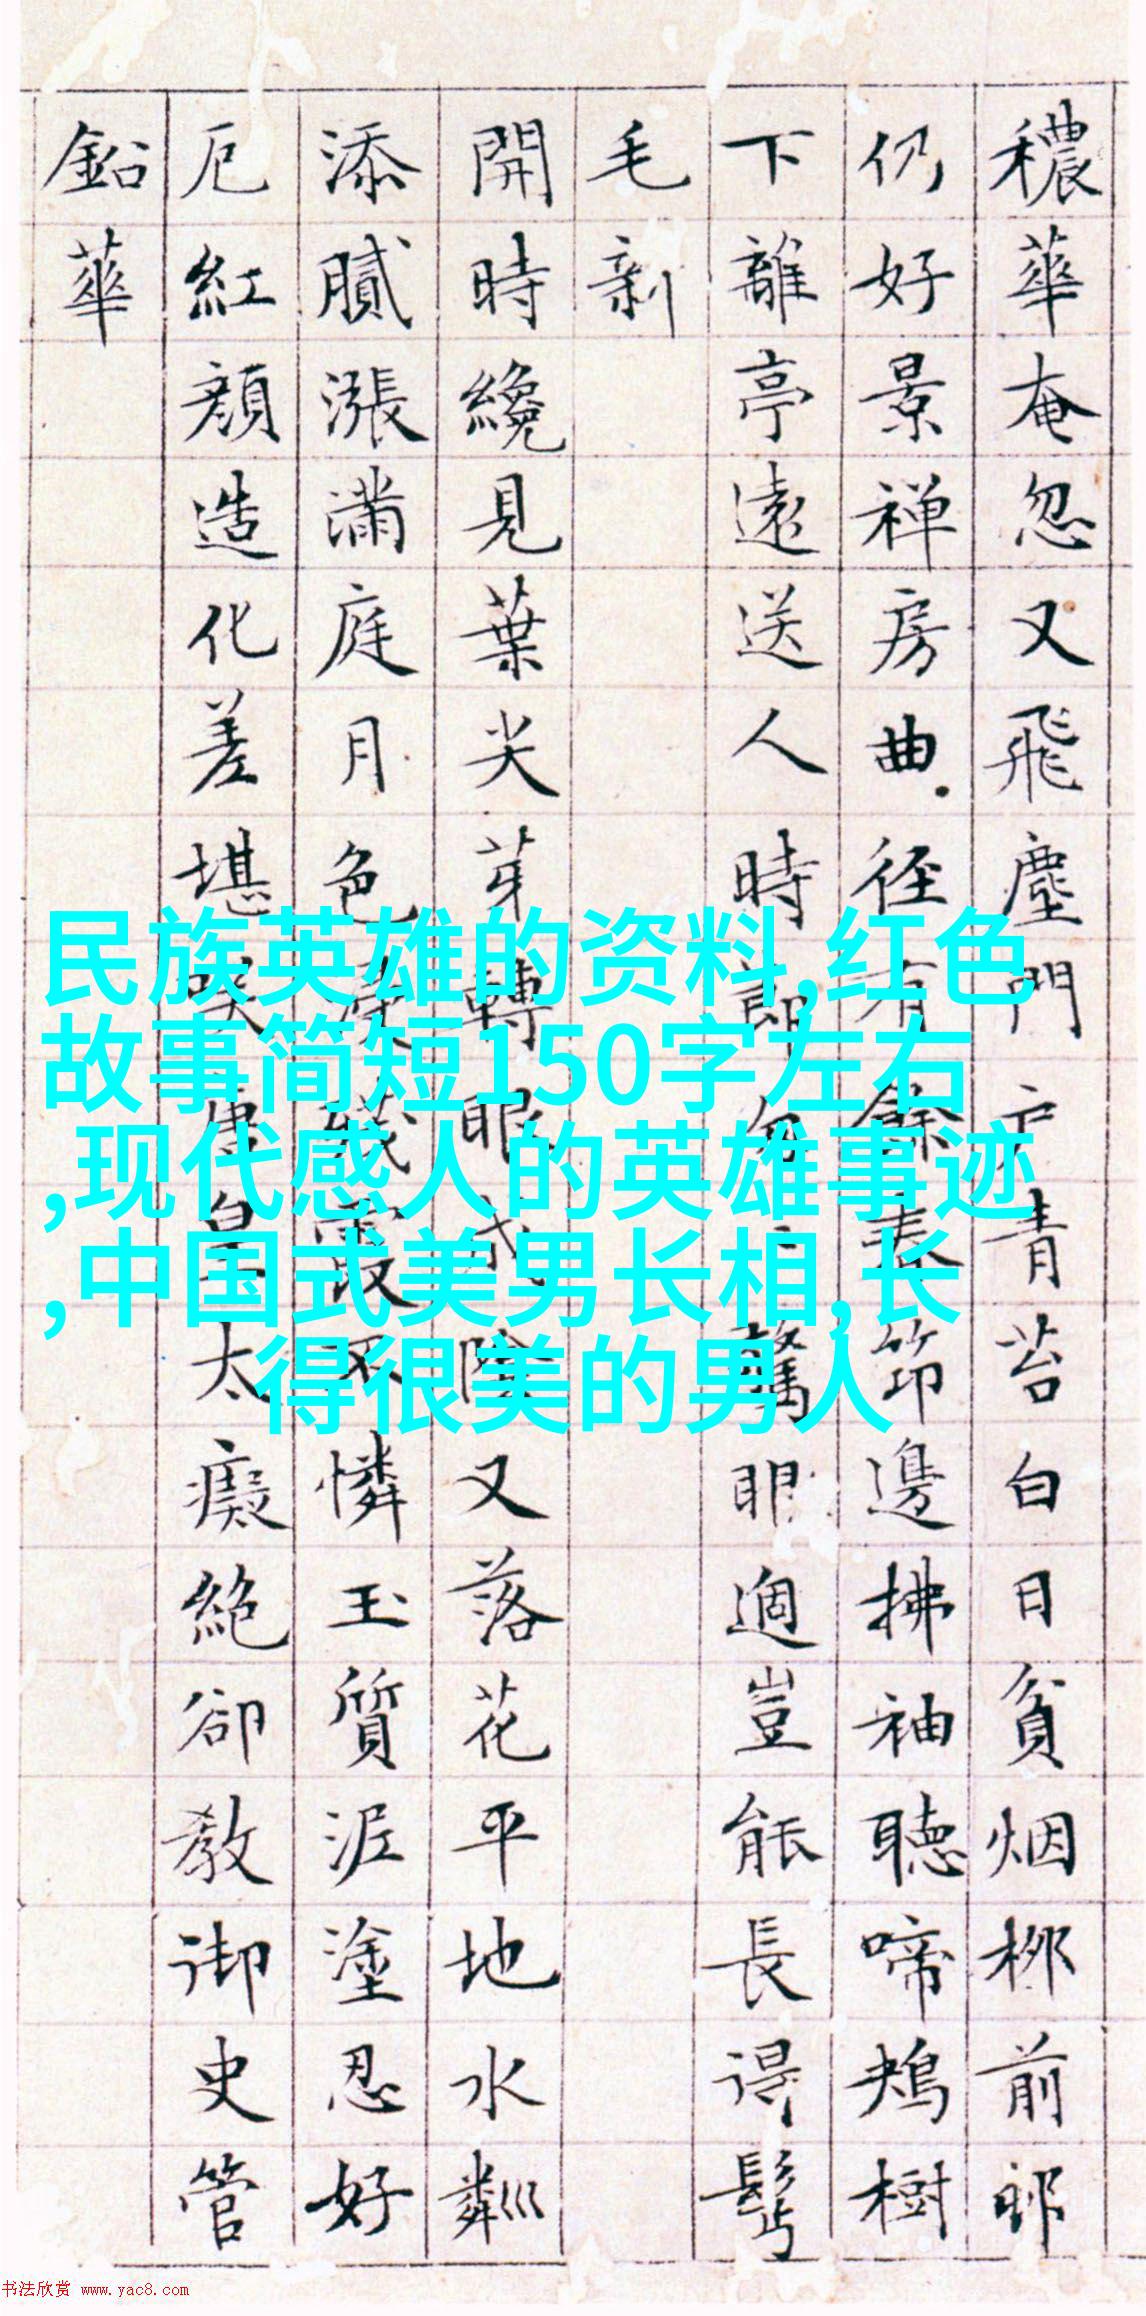 穠華奄忽又飛塵門戶青苔白日貧烟柳前
仍好景禅房曲徑有餘春笻邊拂袖聽啼鴂樹
下離亭遠送人時匆驚眼過豈能長得鬢
毛新
開時纔見葉尖芽轉眼成陰又落花平地水粼
添膩漲滿庭月色霞不憐玉質泥塗忍好
厄紅顏造化差堪笑唐皇太癡絕卻教御史管
鉛華
民族英雄的资料,红色
故事简短150字左右
,现代感人的英雄事迹
,中国式美男长相,长
得很美的男人
书法欣赏 www.yac8.com